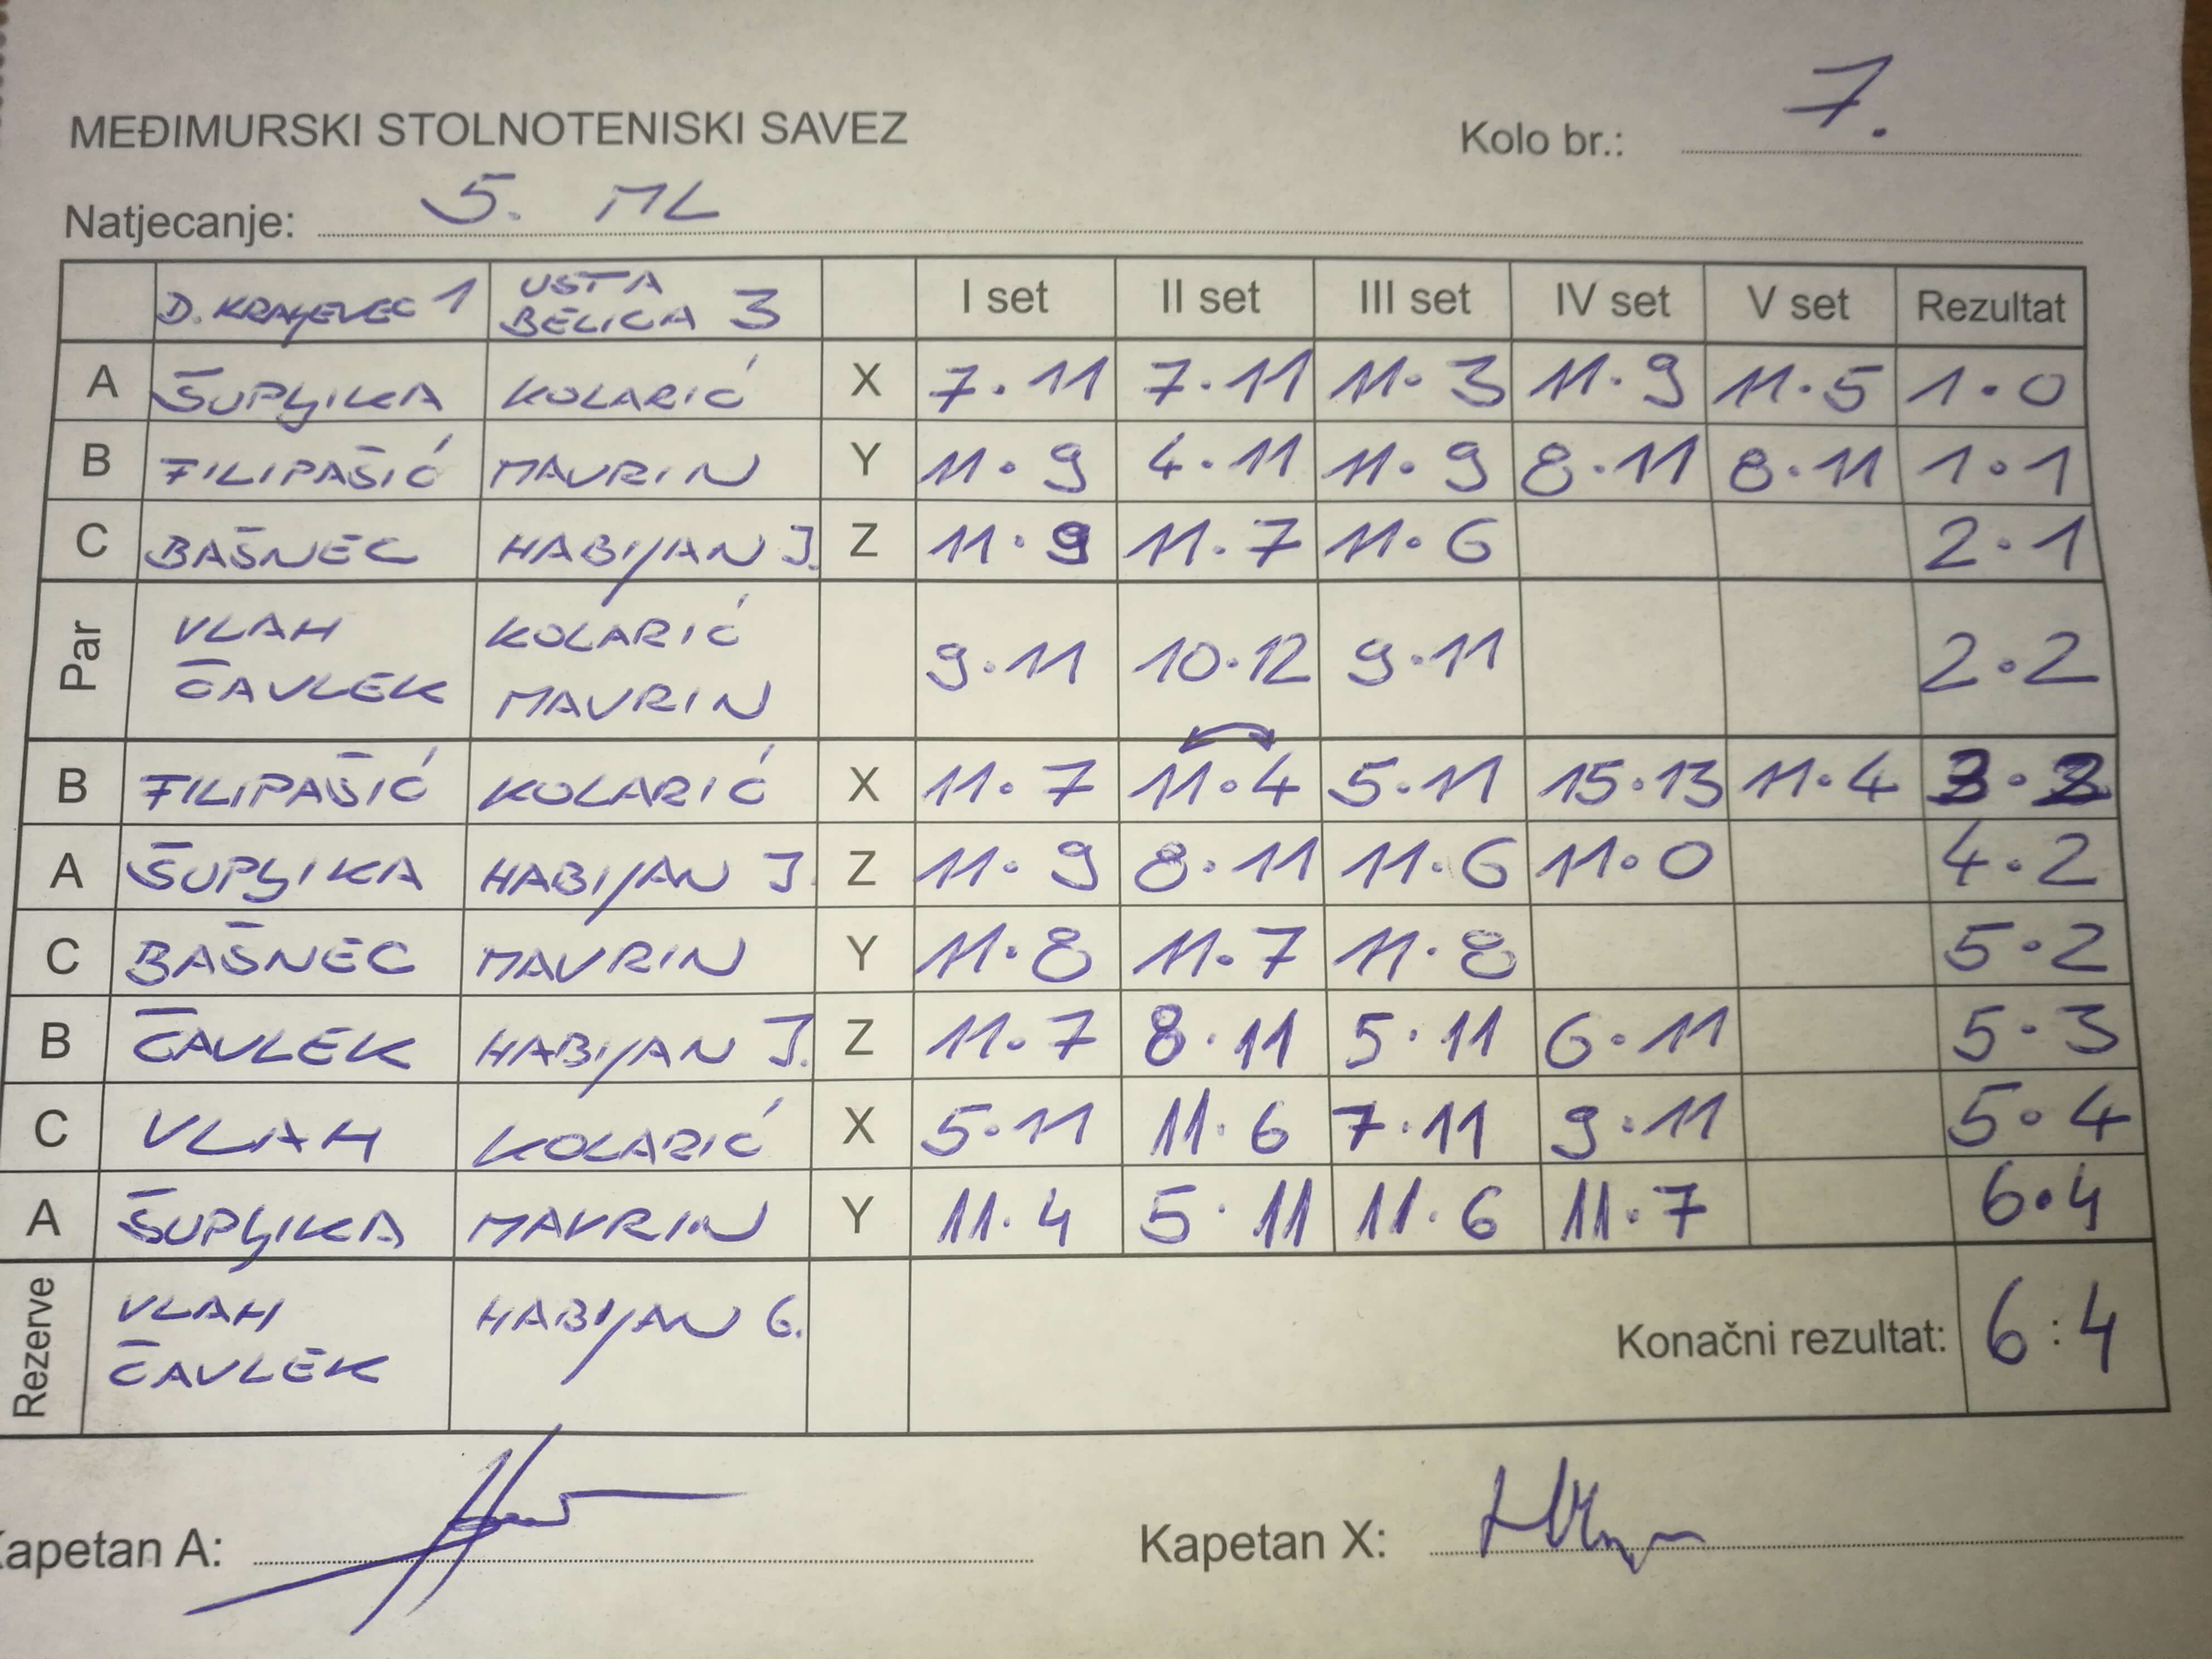 MEĐIMURSKI STOLNOTENISKI SAVEZ Kolo br.: 7.
Natjecanje: 5. ML
D. KRALJEVEC 1 USTA BELICA 3 I set II set III set IV set V set Rezultat
A ŠUPLJIKA KOLARIĆ X 7·11 7·11 11·3 11·9 11·5 1·0
B FILIPAŠIĆ MAVRIN Y 11·9 4·11 11·9 8·11 8·11 1·1
C BAŠNEC HABIJAN J. Z 11·9 11·7 11·6 2·1
Par VLAH ČAVLEK KOLARIĆ MAVRIN 9·11 10·12 9·11 2·2
B FILIPAŠIĆ KOLARIĆ X 11·7 11·4 5·11 15·13 11·4 3·2
A ŠUPLJIKA HABIJAN J. Z 11·9 8·11 11·6 11·0 4·2
C BAŠNEC MAVRIN Y 11·8 11·7 11·8 5·2
B ČAVLEK HABIJAN J. Z 11·7 8·11 5·11 6·11 5·3
C VLAH KOLARIĆ X 5·11 11·6 7·11 9·11 5·4
A ŠUPLJIKA MAVRIN Y 11·4 5·11 11·6 11·7 6·4
Rezerve VLAH ČAVLEK HABIJAN G. Konačni rezultat: 6:4
Kapetan A: Kapetan X: